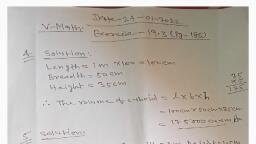 Date - 27-01-2022
V-Maths.
Exercise - 19.3 (Pg-185)
4. Solution:
Length = 1m x100 = 100cm
Breadth = 50cm
Height = 35cm
35
5
175
∴ The volume of cuboid = l x b x h
= 100cm x 50cm x 35cm
= 175000
5. Solution: